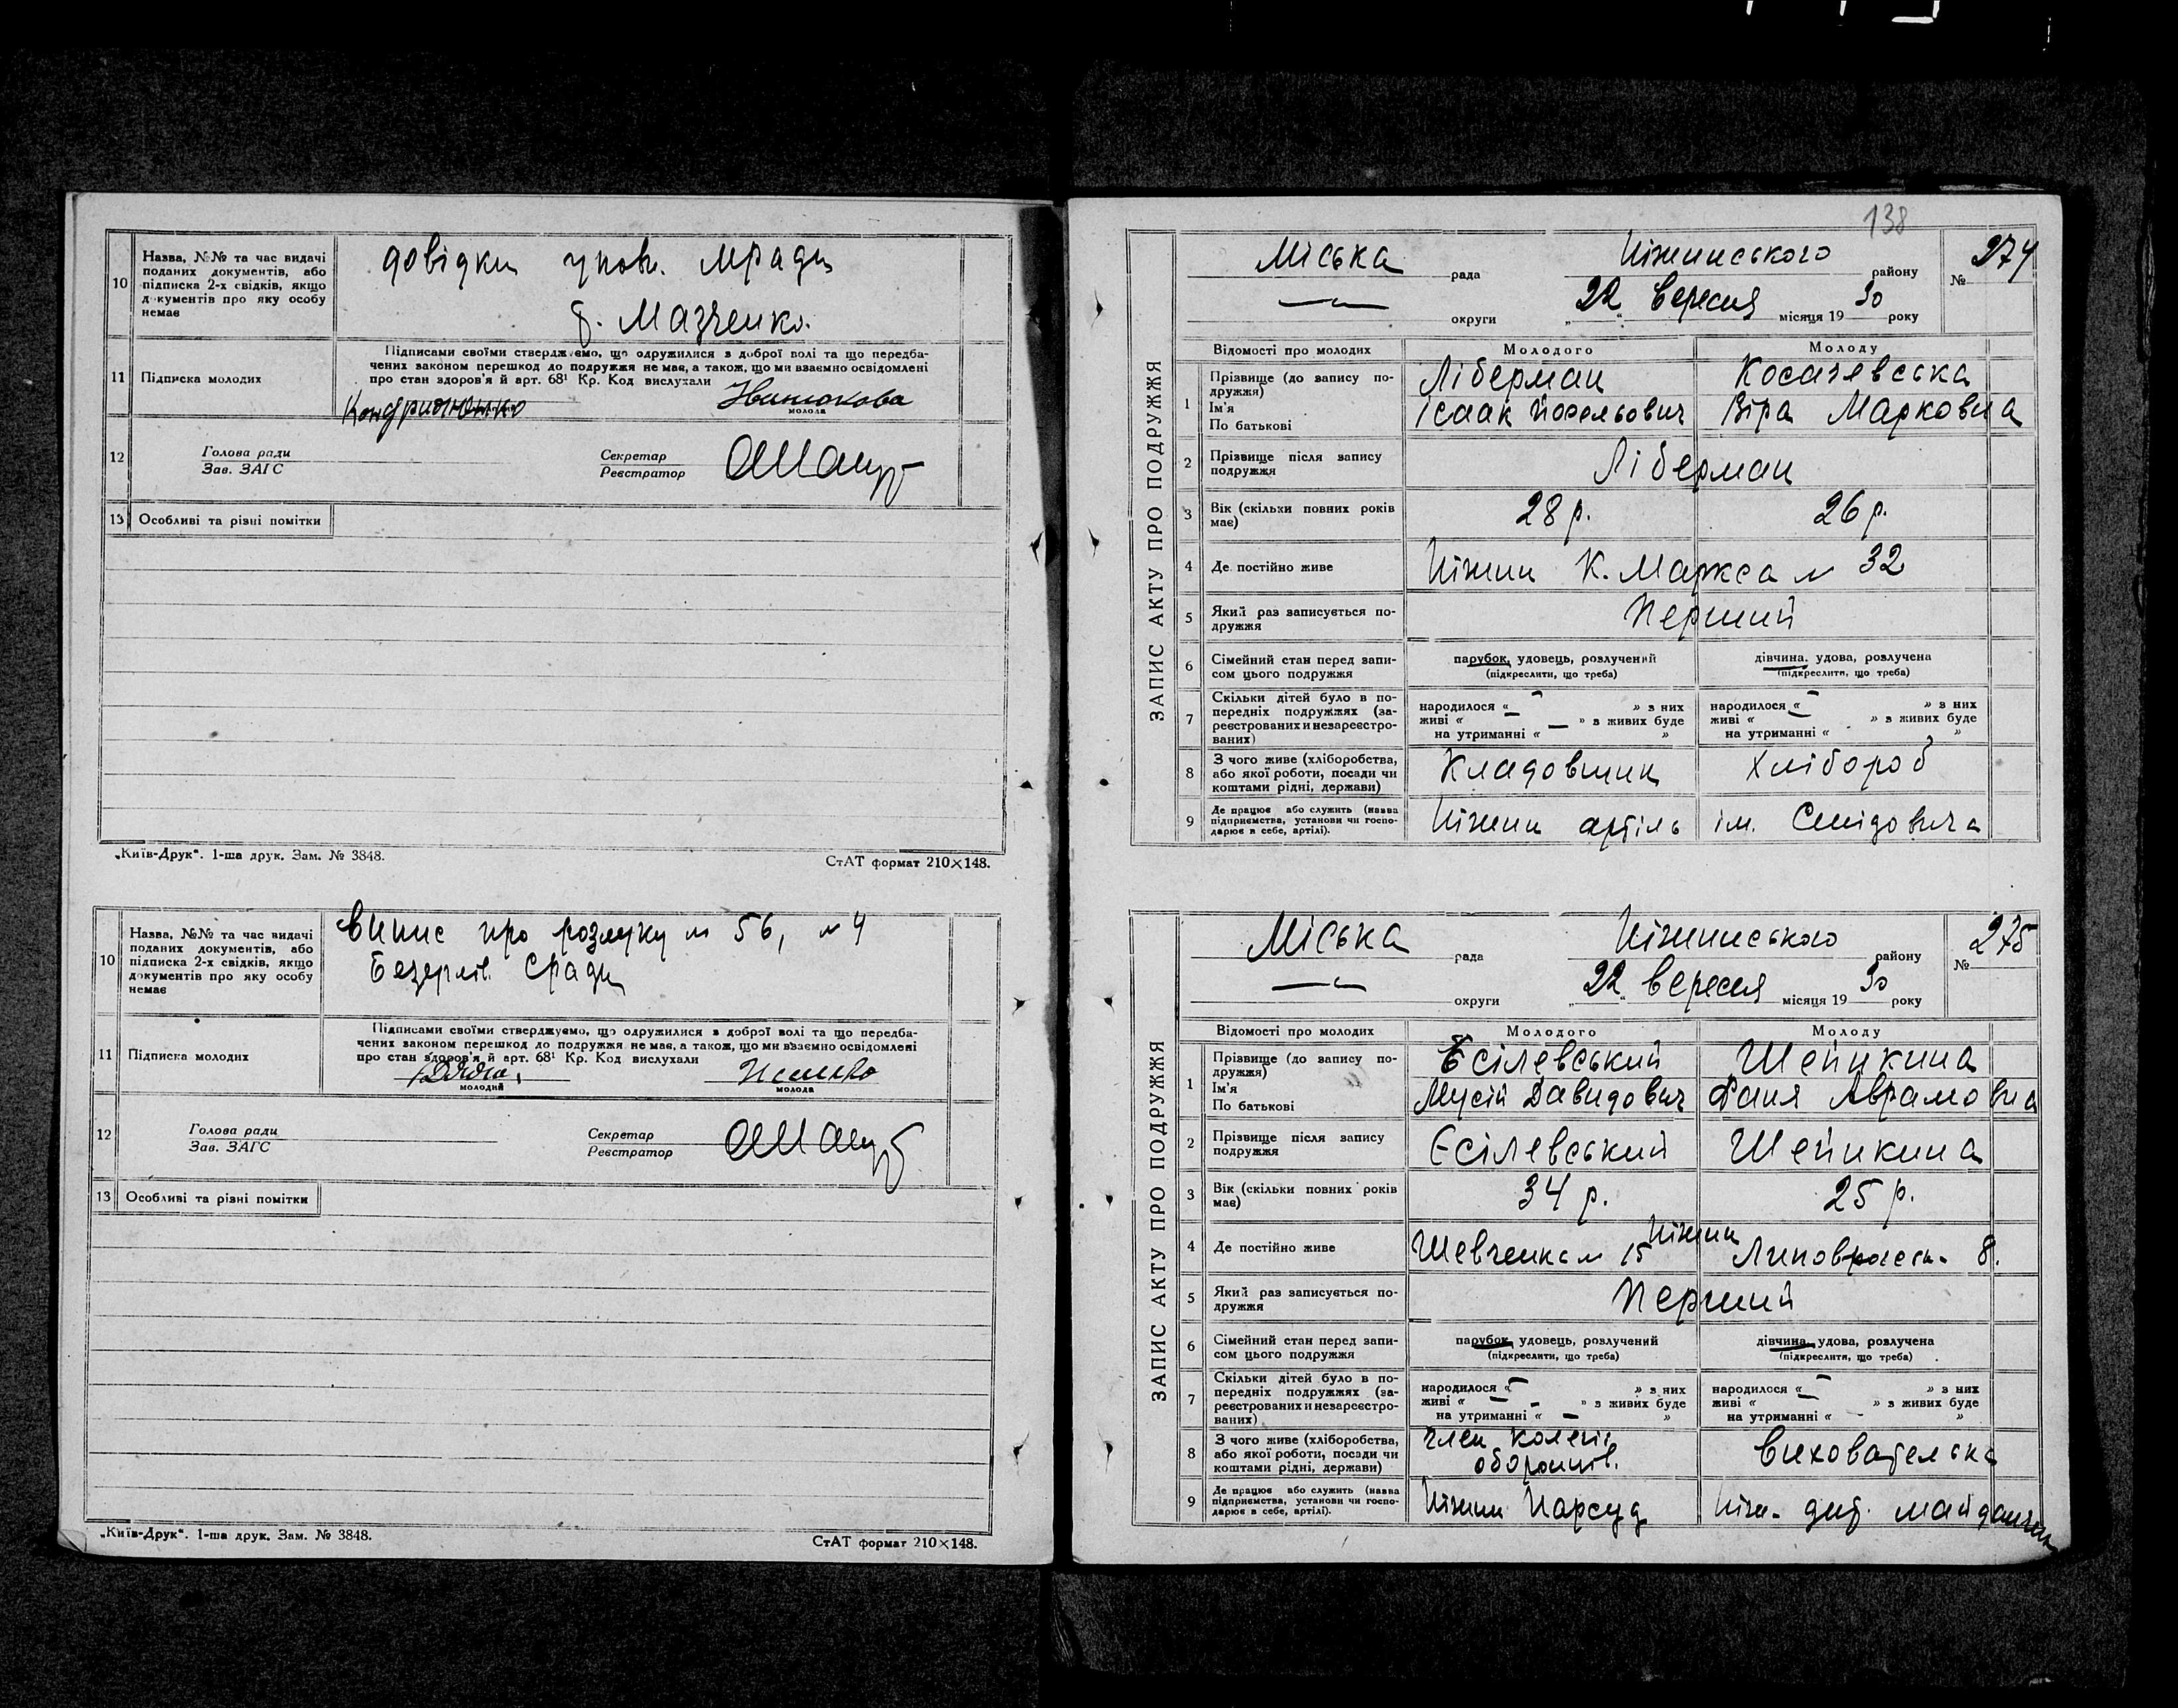 10 Назва, №№ та час видачі поданих документів, або підписка 2-х свідків, якщо документів про яку особу немає
довідки уповн. мради
б. Мазченко.
11 Підписка молодих
Підписами своїми стверджуємо, що одружилися з доброї волі та що передба-
чених законом перешкод до подружжя не має, а також, що ми взаємно освідомлені
про стан здоров'я й арт. 68¹ Кр. Код вислухали
молода
12 Голова ради
Зав. ЗАГС
Секретар
Реєстратор
13 Особливі та різні помітки
„Київ-Друк“. 1-ша друк. Зам. № 3848.
СтАТ формат 210×148.
10 Назва, №№ та час видачі поданих документів, або підписка 2-х свідків, якщо документів про яку особу немає
Випис про розлуку № 56, № 4
сради
11 Підписка молодих
Підписами своїми стверджуємо, що одружилися з доброї волі та що передба-
чених законом перешкод до подружжя не має, а також, що ми взаємно освідомлені
про стан здоров'я й арт. 68¹ Кр. Код вислухали
молодий
молода
12 Голова ради
Зав. ЗАГС
Секретар
Реєстратор
13 Особливі та різні помітки
„Київ-Друк“. 1-ша друк. Зам. № 3848.
СтАТ формат 210×148.
138
ЗАПИС АКТУ ПРО ПОДРУЖЖЯ
Міська рада Ніжинського району № 274
— округи „22“ вересня місяця 1930 року
Відомості про молодих Молодого Молоду
1 Прізвище (до запису по-
дружжя)
Ім'я
По батькові
Ліберман Косачевська
Ісаак Йосельович Віра Марковна
2 Прізвище після запису
подружжя
Ліберман
3 Вік (скільки повних років
має)
28 р. 26 р.
4 Де постійно живе Ніжин К. Маркса № 32
5 Який раз записується по-
дружжя
Перший
6 Сімейний стан перед запи-
сом цього подружжя
парубок, удовець, розлучений дівчина, удова, розлучена
(підкреслити, що треба) (підкреслити, що треба)
7 Скільки дітей було в по-
передніх подружжях (за-
реєстрованих и незареєстро-
ваних)
народилося « — » з них народилося « — » з них
живі « — » з живих буде живі « — » з живих буде
на утриманні « — » на утриманні « »
8 З чого живе (хліборобства,
або якої роботи, посади чи
коштами рідні, держави)
Кладовщик Хлібороб
9 Де працює або служить (назва
підприємства, установи чи госпо-
дарює в себе, артілі).
Ніжин артіль ім. Смідовича
ЗАПИС АКТУ ПРО ПОДРУЖЖЯ
Міська рада Ніжинського району № 275
— округи „22“ вересня місяця 1930 року
Відомості про молодих Молодого Молоду
1 Прізвище (до запису по-
дружжя)
Ім'я
По батькові
Єсілевський Шейнкина
Мусій Давидович Фаня Аврамовна
2 Прізвище після запису
подружжя
Єсілевський Шейнкина
3 Вік (скільки повних років
має)
34 р. 25 р.
4 Де постійно живе
Ніжин
Шевченка № 15 8.
5 Який раз записується по-
дружжя
Перший
6 Сімейний стан перед запи-
сом цього подружжя
парубок, удовець, розлучений дівчина, удова, розлучена
(підкреслити, що треба) (підкреслити, що треба)
7 Скільки дітей було в по-
передніх подружжях (за-
реєстрованих и незареєстро-
ваних)
народилося « — » з них народилося « — » з них
живі « — » з живих буде живі « — » з живих буде
на утриманні « — » на утриманні « - »
8 З чого живе (хліборобства,
або якої роботи, посади чи
коштами рідні, держави)
член колегії
оборонців. Вихователька
9 Де працює або служить (назва
підприємства, установи чи госпо-
дарює в себе, артілі).
Ніжин Нарсуд Ніж. дит. майданчик